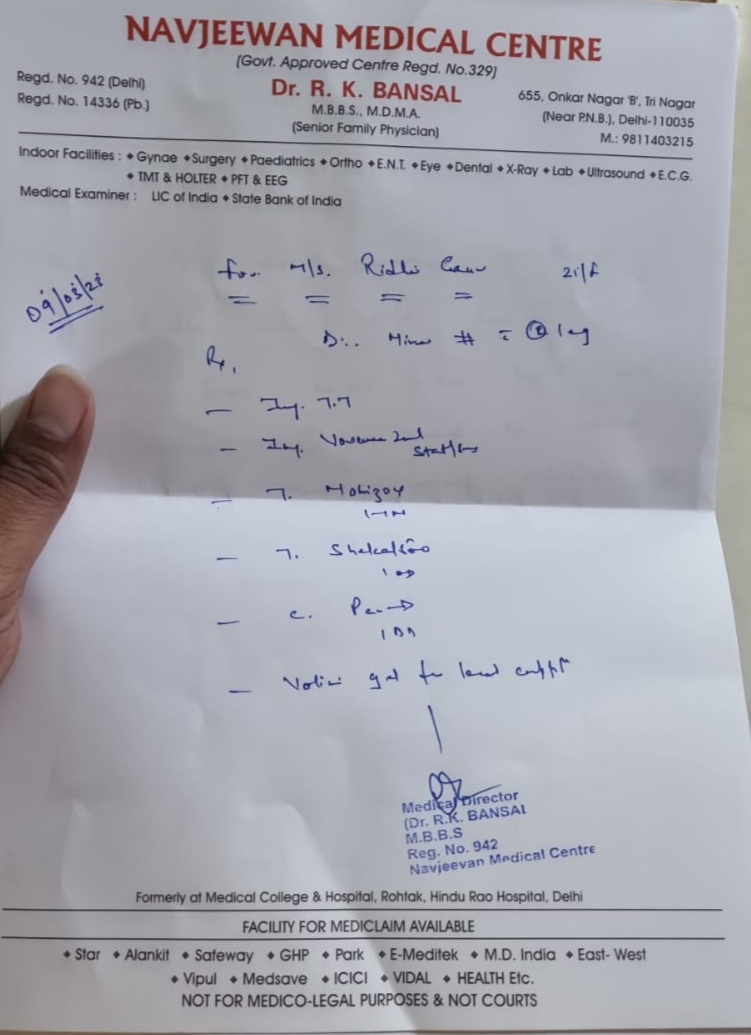 NAVJEEWAN MEDICAL CENTRE
(Govt. Approved Centre Regd. No.329)
Regd. No. 942 (Delhi)
Regd. No. 14336 (Pb.)
Dr. R. K. BANSAL
M.B.B.S., M.D.M.A.
(Senior Family Physician)
655, Onkar Nagar 'B', Tri Nagar
(Near P.N.B.), Delhi-110035
M.: 9811403215
Indoor Facilities : ♦ Gynae ♦ Surgery ♦ Paediatrics ♦ Ortho ♦ E.N.T. ♦ Eye ♦ Dental ♦ X-Ray ♦ Lab ♦ Ultrasound ♦ E.C.G.
♦ TMT & HOLTER ♦ PFT & EEG
Medical Examiner : LIC of India ♦ State Bank of India
09/03/23
for M/s. Ridhi 21/f
D:. Minor # leg
Rx,
- Inj. T.T
- Inj. 2ml
Stat
- T.
- T. Shelcal
1 OD
- C. Pan-D
1 BD
- Volini gel for local
Medical Director
(Dr. R.K. BANSAL
M.B.B.S
Reg. No. 942
Navjeevan Medical Centre
Formerly at Medical College & Hospital, Rohtak, Hindu Rao Hospital, Delhi
FACILITY FOR MEDICLAIM AVAILABLE
♦ Star ♦ Alankit ♦ Safeway ♦ GHP ♦ Park ♦ E-Meditek ♦ M.D. India ♦ East- West
♦ Vipul ♦ Medsave ♦ ICICI ♦ VIDAL ♦ HEALTH Etc.
NOT FOR MEDICO-LEGAL PURPOSES & NOT COURTS